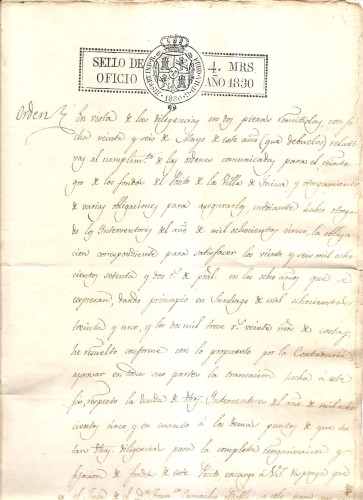 SELLO DE OFICIO
4. MRS AÑO 1830
Orden
En vista de las diligencias en dos piezas remitidas con fe
cha veinte y seis de Mayo de este año (que debuelvo) relati
vas al cumplim.to de las ordenes comunicadas para el reinte
gro de los fondos del Posito de la Villa de y otorgamiento
de varias obligaciones para asegurarlo, mediante haber otorga
do los Interventores del año de mil ochocientos cinco, la obliga
cion correspondiente para satisfacer los veinte y seis mil ocho
cientos setenta y dos r.s de pral. en los ocho años que se
expresan, dando principio en Santiago de mil ochocientos
treinta y uno, y los dos mil trece r.s veinte mrs de costas,
he resuelto conforme con lo propuesto por la Contaduria
aprovar en todas sus partes la transacion hecha á este
fin, respecto la deuda de Interventores del año de mil ocho
cientos cinco; y en cuanto á los demas puntos de que tra
tan diligencias para la completa reintegracion y
fijacion de fondos de este Posito encargo á V.S. disponga que
el de